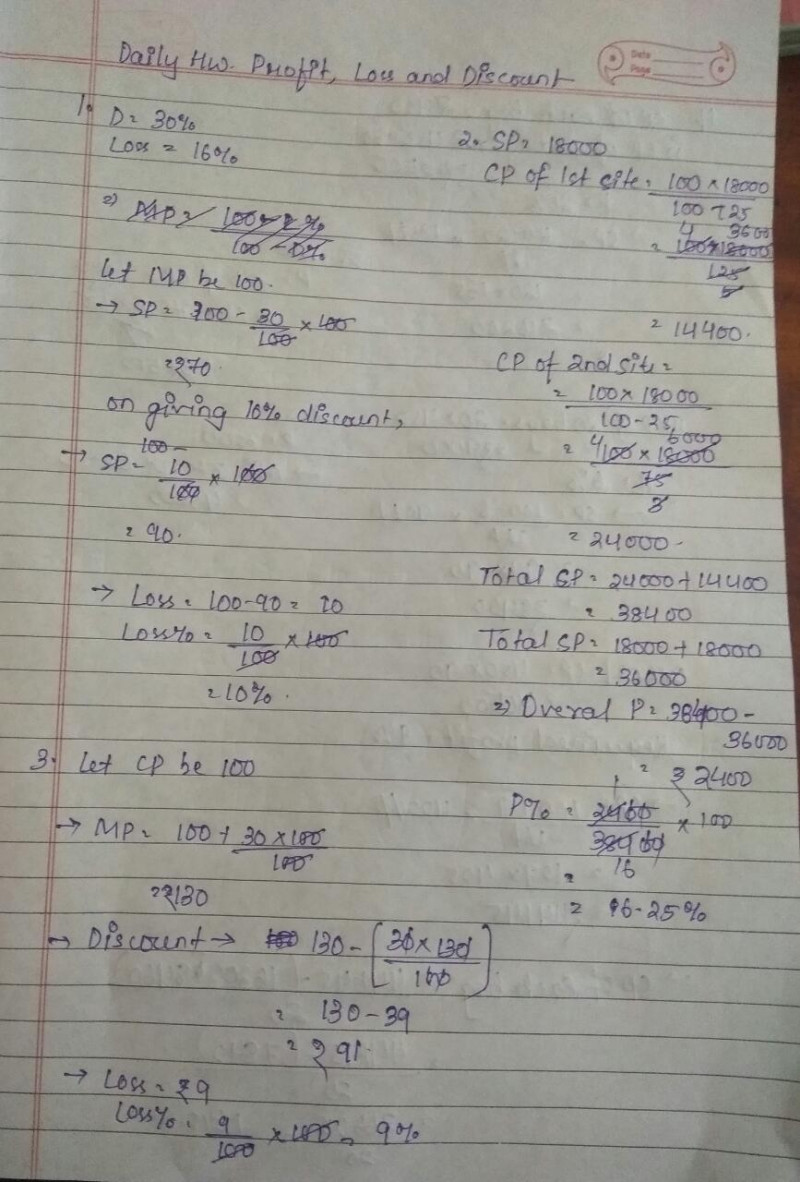 Daily Hw. Profit, Loss and Discount
Date
Page
1. D = 30%
Loss = 16%
Let MP be 100.
→ SP = 100 - 30/100 × 100
= ₹70.
on giving 10% discount,
→ SP = 100 - 10/100 × 100
= 90.
→ Loss = 100-90 = 10
Loss% = 10/100 × 100
= 10%.
2. SP = 18000
CP of 1st site = 100 × 18000/100 + 25
= 100 × 18000/125
4 3600
5
= 14400.
CP of 2nd site =
= 100 × 18000/100 - 25
= 100 × 18000/75
4 6000
3
= 24000.
Total SP = 24000 + 14400
= 38400
Total SP = 18000 + 18000
= 36000
=) Overal P = 38400 -
36000
= ₹ 2400
P% = 2400/38400 × 100
1
16
=
= 6.25%
3. Let CP be 100
→ MP = 100 + 30 × 100/100
= ₹130
→ Discount → 130 - [30 × 130/100]
= 130 - 39
= ₹ 91.
→ Loss = ₹9
Loss% = 9/100 × 100 = 9%